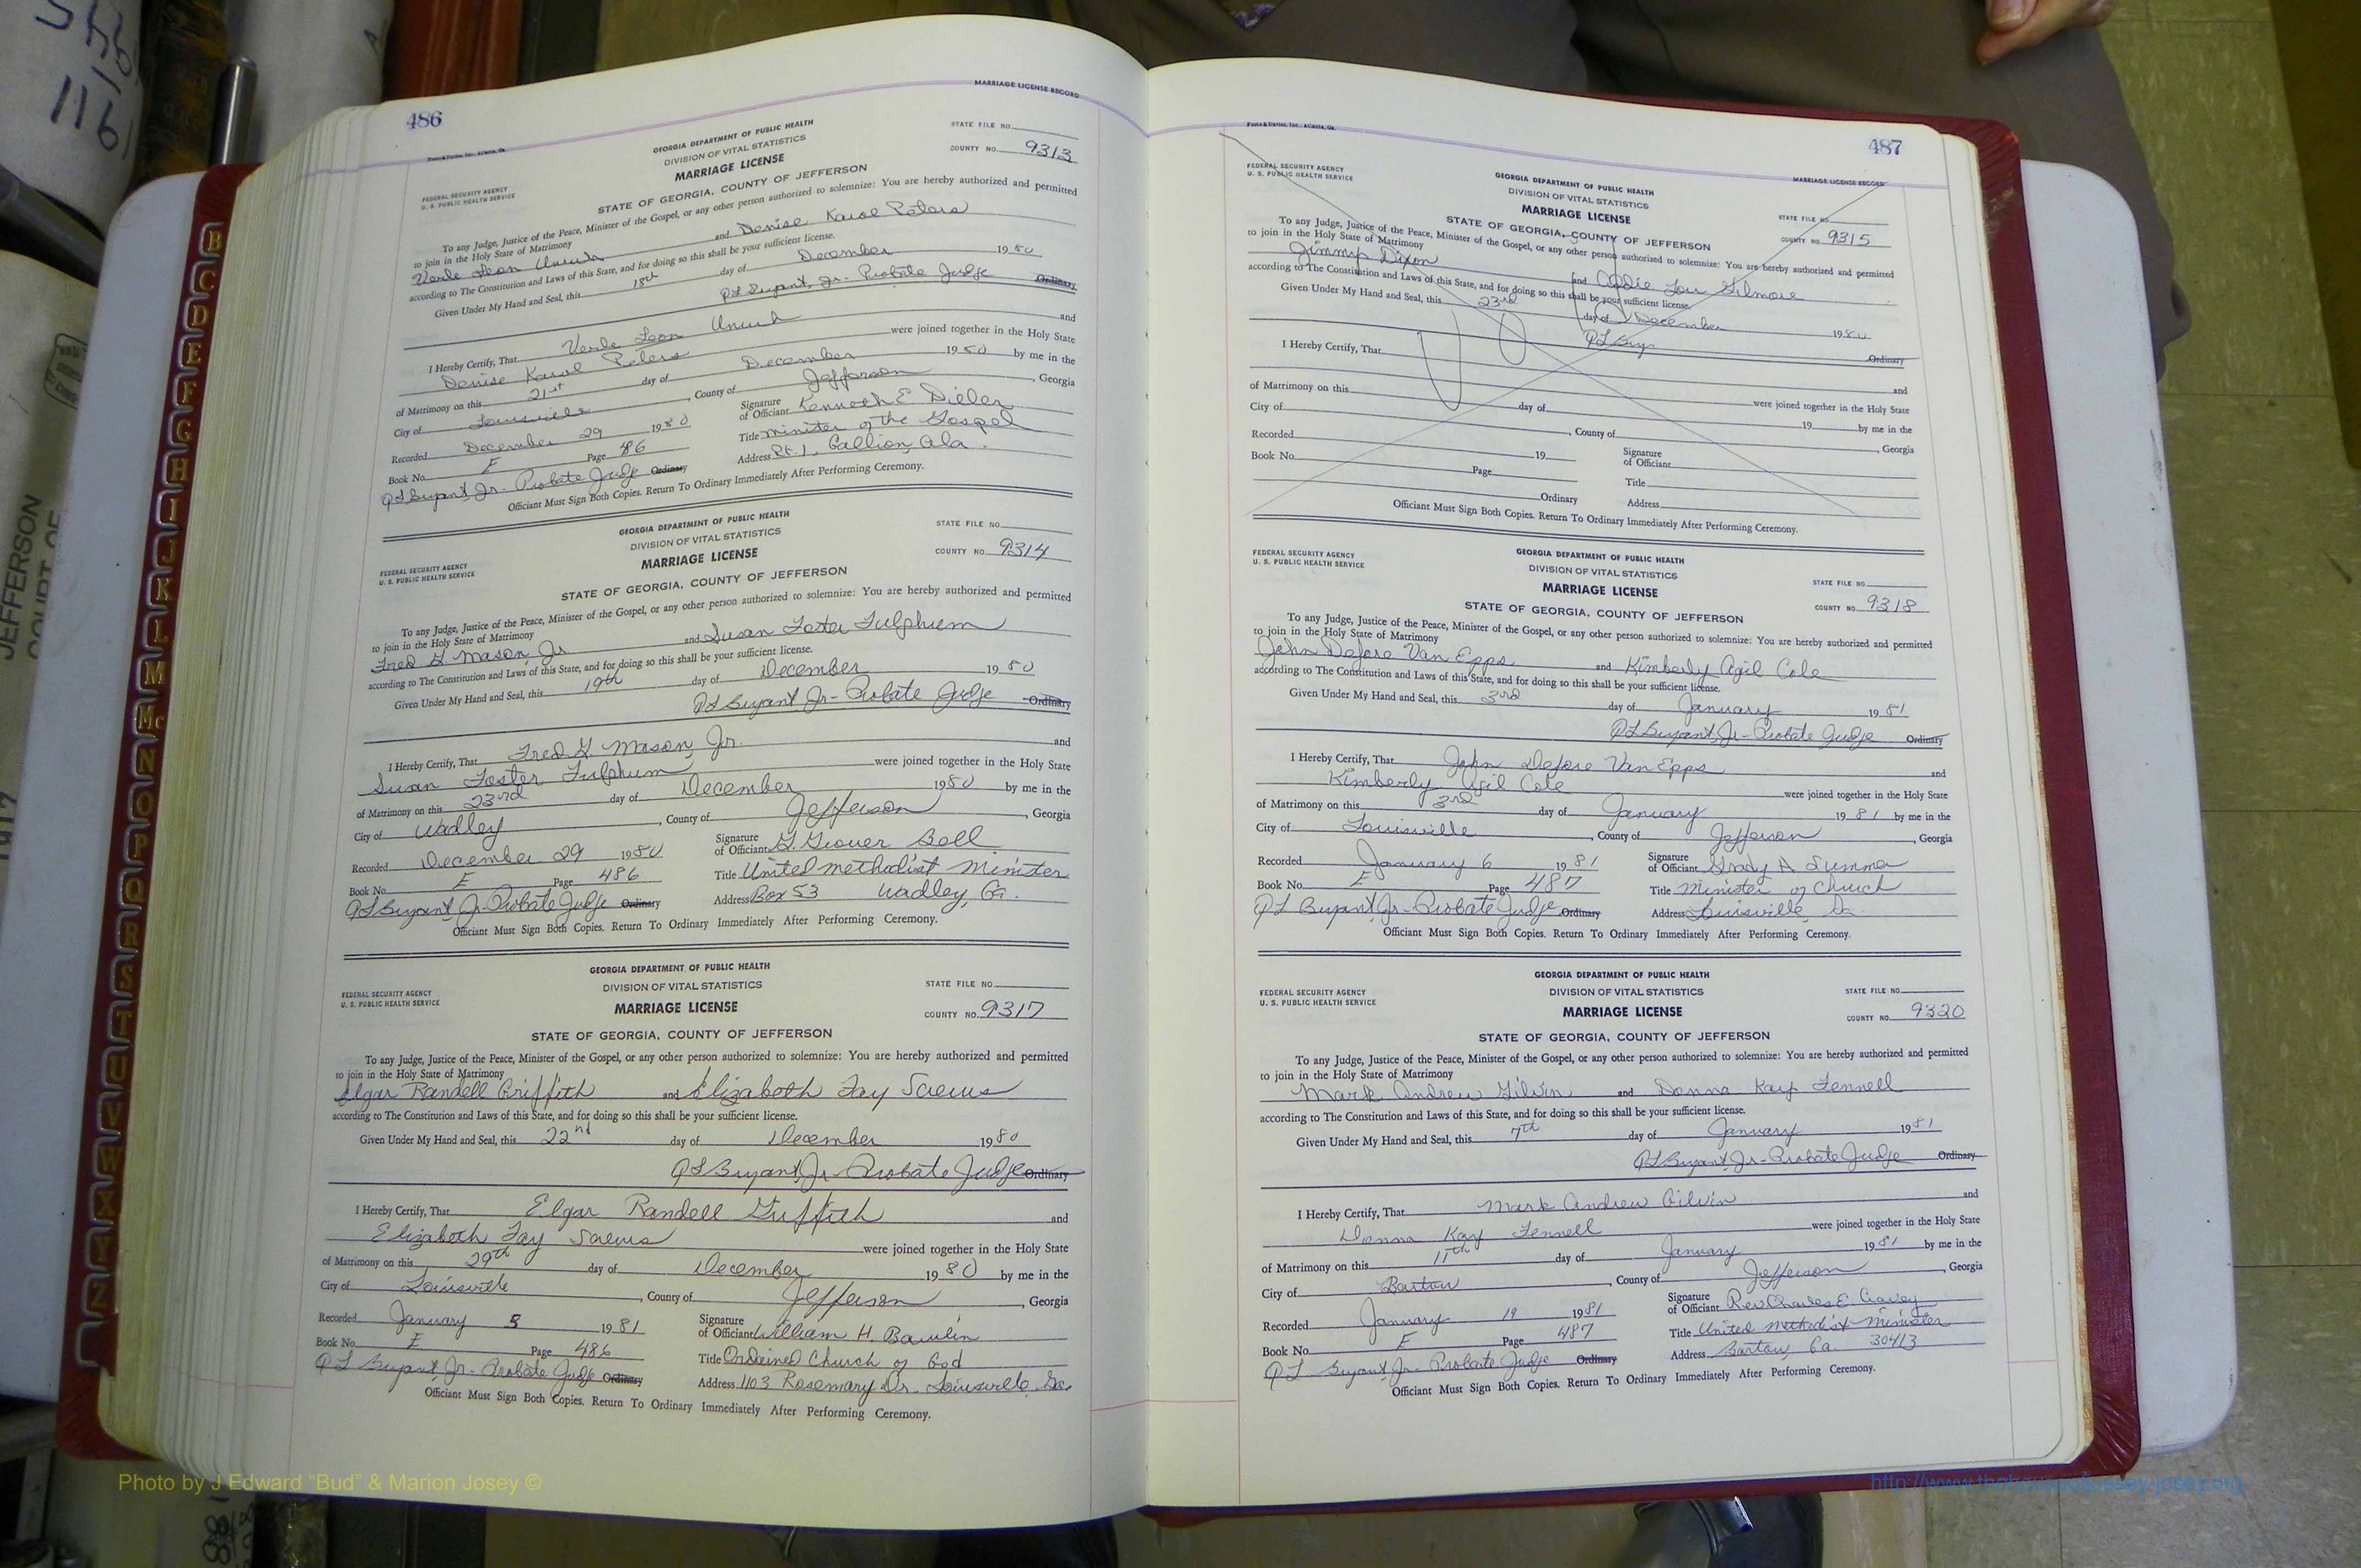 486
MARRIAGE LICENSE RECORD
GEORGIA DEPARTMENT OF PUBLIC HEALTH
DIVISION OF VITAL STATISTICS
MARRIAGE LICENSE
STATE OF GEORGIA, COUNTY OF JEFFERSON
FEDERAL SECURITY AGENCY
U. S. PUBLIC HEALTH SERVICE
STATE FILE NO.
COUNTY NO. 9313
To any Judge, Justice of the Peace, Minister of the Gospel, or any other person authorized to solemnize: You are hereby authorized and permitted
to join in the Holy State of Matrimony
Verle Leon Unruh and Denise Karol Peters
according to The Constitution and Laws of this State, and for doing so this shall be your sufficient license.
Given Under My Hand and Seal, this 18th day of December 1980
QL Bryant, Jr. Probate Judge Ordinary
I Hereby Certify, That Verle Leon Unruh and
Denise Karol Peters were joined together in the Holy State
of Matrimony on this 21st day of December 1980 by me in the
City of Louisville, County of Jefferson, Georgia
Recorded December 29 1980
Signature of Officiant Kenneth E. Dieler
Book No. E Page 486
Title Minister of the Gospel
QL Bryant, Jr. Probate Judge Ordinary
Address Rt. 1, Gallion, Ala.
Officiant Must Sign Both Copies. Return To Ordinary Immediately After Performing Ceremony.
GEORGIA DEPARTMENT OF PUBLIC HEALTH
DIVISION OF VITAL STATISTICS
MARRIAGE LICENSE
STATE OF GEORGIA, COUNTY OF JEFFERSON
FEDERAL SECURITY AGENCY
U. S. PUBLIC HEALTH SERVICE
STATE FILE NO.
COUNTY NO. 9314
To any Judge, Justice of the Peace, Minister of the Gospel, or any other person authorized to solemnize: You are hereby authorized and permitted
to join in the Holy State of Matrimony
Fred G Mason, Jr and Susan Foster Fulghum
according to The Constitution and Laws of this State, and for doing so this shall be your sufficient license.
Given Under My Hand and Seal, this 19th day of December 1980
QL Bryant, Jr - Probate Judge Ordinary
I Hereby Certify, That Fred G. Mason, Jr. and
Susan Foster Fulghum were joined together in the Holy State
of Matrimony on this 23rd day of December 1980 by me in the
City of Wadley, County of Jefferson, Georgia
Recorded December 29 1980
Signature of Officiant G. Grover Bell
Book No. E Page 486
Title United Methodist Minister
QL Bryant, Jr - Probate Judge Ordinary
Address Box 53 Wadley, Ga.
Officiant Must Sign Both Copies. Return To Ordinary Immediately After Performing Ceremony.
GEORGIA DEPARTMENT OF PUBLIC HEALTH
DIVISION OF VITAL STATISTICS
MARRIAGE LICENSE
STATE OF GEORGIA, COUNTY OF JEFFERSON
FEDERAL SECURITY AGENCY
U. S. PUBLIC HEALTH SERVICE
STATE FILE NO.
COUNTY NO. 9317
To any Judge, Justice of the Peace, Minister of the Gospel, or any other person authorized to solemnize: You are hereby authorized and permitted
to join in the Holy State of Matrimony
Elgar Randell Griffith and Elizabeth Fay Screws
according to The Constitution and Laws of this State, and for doing so this shall be your sufficient license.
Given Under My Hand and Seal, this 22nd day of December 1980
QL Bryant, Jr - Probate Judge Ordinary
I Hereby Certify, That Elgar Randell Griffith and
Elizabeth Fay Screws were joined together in the Holy State
of Matrimony on this 29th day of December 1980 by me in the
City of Louisville, County of Jefferson, Georgia
Recorded January 5 1981
Signature of Officiant William H.
Book No. E Page 486
Title Ordained Church of God
QL Bryant, Jr - Probate Judge Ordinary
Address 1103 Rosemary Dr. Louisville, Ga.
Officiant Must Sign Both Copies. Return To Ordinary Immediately After Performing Ceremony.
487
MARRIAGE LICENSE RECORD
FEDERAL SECURITY AGENCY
U. S. PUBLIC HEALTH SERVICE
GEORGIA DEPARTMENT OF PUBLIC HEALTH
DIVISION OF VITAL STATISTICS
MARRIAGE LICENSE
STATE OF GEORGIA, COUNTY OF JEFFERSON
STATE FILE NO.
COUNTY NO. 9315
To any Judge, Justice of the Peace, Minister of the Gospel, or any other person authorized to solemnize: You are hereby authorized and permitted
to join in the Holy State of Matrimony
Jimmy Dixon and Addie Lou Gilmore
according to The Constitution and Laws of this State, and for doing so this shall be your sufficient license.
Given Under My Hand and Seal, this 23rd day of December 1980
Ordinary
I Hereby Certify, That and
were joined together in the Holy State
of Matrimony on this day of 19 by me in the
City of , County of , Georgia
Recorded 19
Signature of Officiant
Book No. Page
Title
Ordinary
Address
Officiant Must Sign Both Copies. Return To Ordinary Immediately After Performing Ceremony.
FEDERAL SECURITY AGENCY
U. S. PUBLIC HEALTH SERVICE
GEORGIA DEPARTMENT OF PUBLIC HEALTH
DIVISION OF VITAL STATISTICS
MARRIAGE LICENSE
STATE OF GEORGIA, COUNTY OF JEFFERSON
STATE FILE NO.
COUNTY NO. 9318
To any Judge, Justice of the Peace, Minister of the Gospel, or any other person authorized to solemnize: You are hereby authorized and permitted
to join in the Holy State of Matrimony
John Defore Van Epps and Kimberly Agil Cole
according to The Constitution and Laws of this State, and for doing so this shall be your sufficient license.
Given Under My Hand and Seal, this 3rd day of January 1981
QL Bryant, Jr - Probate Judge Ordinary
I Hereby Certify, That John Defore Van Epps and
Kimberly Agil Cole were joined together in the Holy State
of Matrimony on this 3rd day of January 1981 by me in the
City of Louisville, County of Jefferson, Georgia
Recorded January 6 1981
Signature of Officiant Grady A Summer
Book No. E Page 487
Title Minister of Church
QL Bryant, Jr - Probate Judge Ordinary
Address Louisville, Ga.
Officiant Must Sign Both Copies. Return To Ordinary Immediately After Performing Ceremony.
GEORGIA DEPARTMENT OF PUBLIC HEALTH
DIVISION OF VITAL STATISTICS
MARRIAGE LICENSE
STATE OF GEORGIA, COUNTY OF JEFFERSON
FEDERAL SECURITY AGENCY
U. S. PUBLIC HEALTH SERVICE
STATE FILE NO.
COUNTY NO. 9320
To any Judge, Justice of the Peace, Minister of the Gospel, or any other person authorized to solemnize: You are hereby authorized and permitted
to join in the Holy State of Matrimony
Mark Andrew Gilvin and Donna Kay Fennell
according to The Constitution and Laws of this State, and for doing so this shall be your sufficient license.
Given Under My Hand and Seal, this 7th day of January 1981
QL Bryant, Jr - Probate Judge Ordinary
I Hereby Certify, That Mark Andrew Gilvin and
Donna Kay Fennell were joined together in the Holy State
of Matrimony on this 11th day of January 1981 by me in the
City of Bartow, County of Jefferson, Georgia
Recorded January 19 1981
Signature of Officiant Rev Charles E.
Book No. E Page 487
Title United Methodist Minister
QL Bryant, Jr - Probate Judge Ordinary
Address Bartow, Ga. 30413
Officiant Must Sign Both Copies. Return To Ordinary Immediately After Performing Ceremony.
B
C
D
E
F
G
H
I
J
K
L
M
Mc
N
O
P
Q
R
S
T
U
V
W
X
Y
Z
JEFFERSON
COURT OF
Photo by J Edward “Bud” & Marion Josey ©